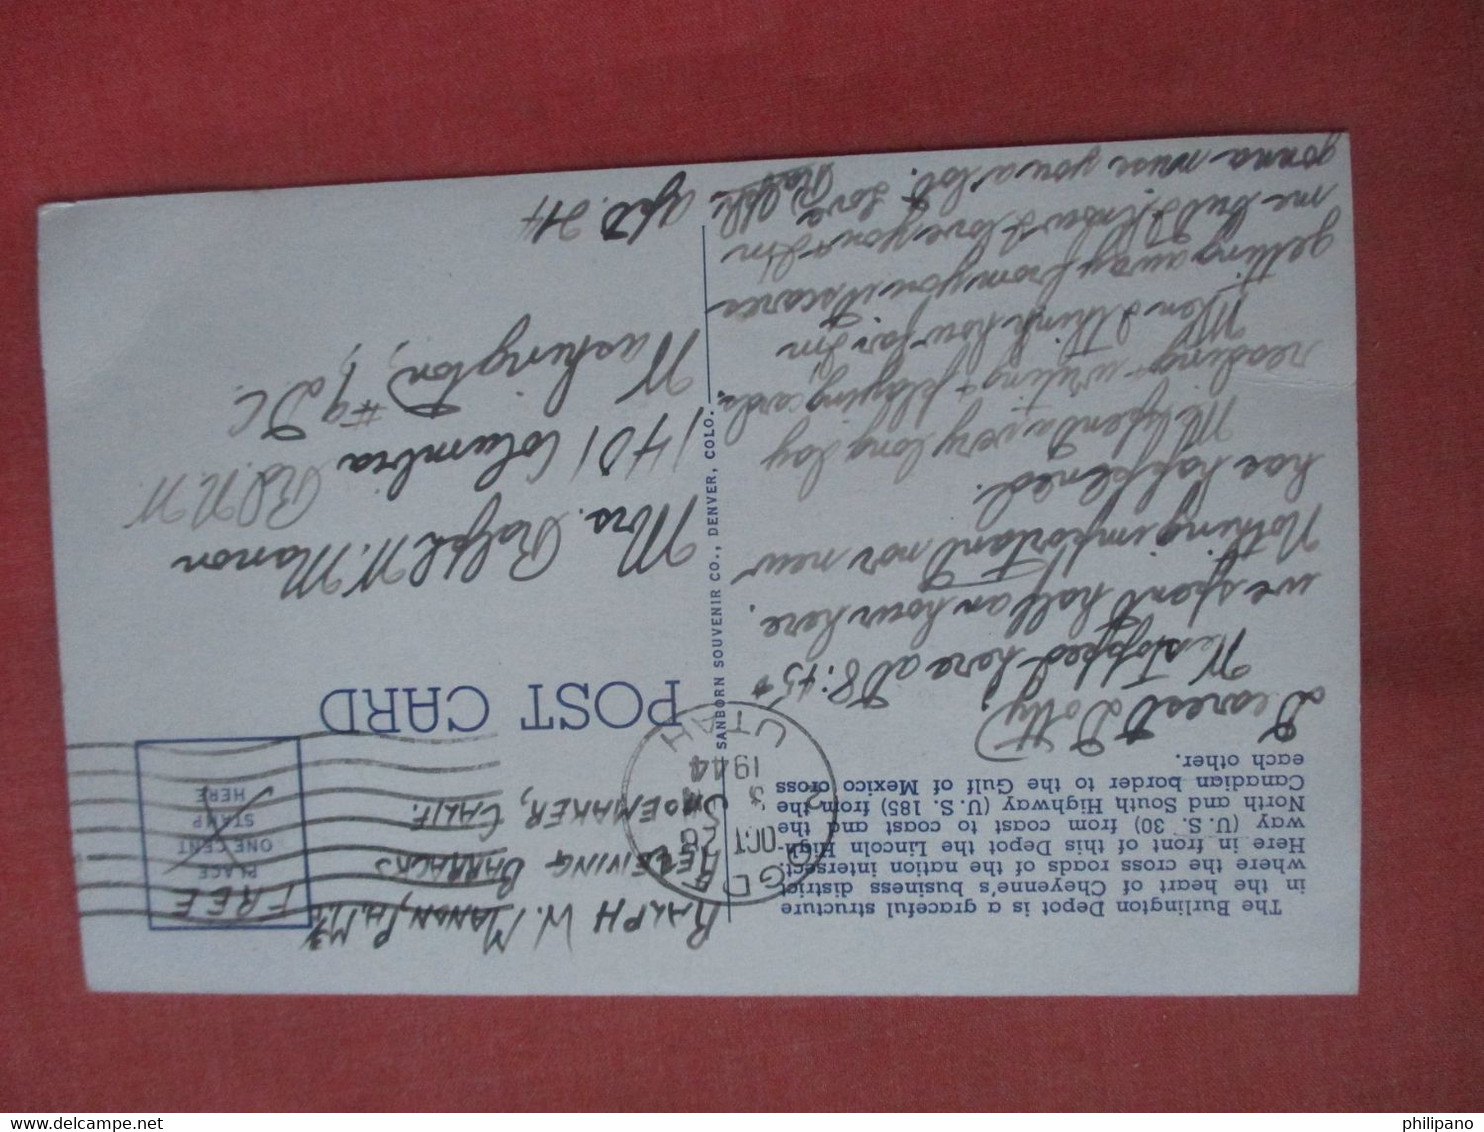 The Burlington Depot is a graceful structure
in the heart of Cheyenne's business district
where the cross roads of the nation intersect.
Here in front of this Depot the Lincoln High-
way (U. S. 30) from coast to coast and the
North and South Highway (U. S. 185) from the
Canadian border to the Gulf of Mexico cross
each other.
Dearest Dotty
We stopped here at 8:45 +
we spent half an hour here.
Nothing important nor new
has happened.
We spend a very long day
reading + writing + playing cards.
When I think how far I'm
getting away from you it scares
me but I know I love you + I'm
gonna miss you a lot. I love
Ralph
SANBORN SOUVENIR CO., DENVER, COLO.
RALPH W. MANON, PH.M.3/c
RECEIVING BARRACKS
SHOEMAKER, CALIF.
OCT 26
3
1944
UTAH
FREE
PLACE
ONE CENT
STAMP
HERE
POST CARD
Mrs. Ralph W. Manon
1401 Columbia Rd. N.W.
Washington, #9, D.C.
Apt. 24
philipano